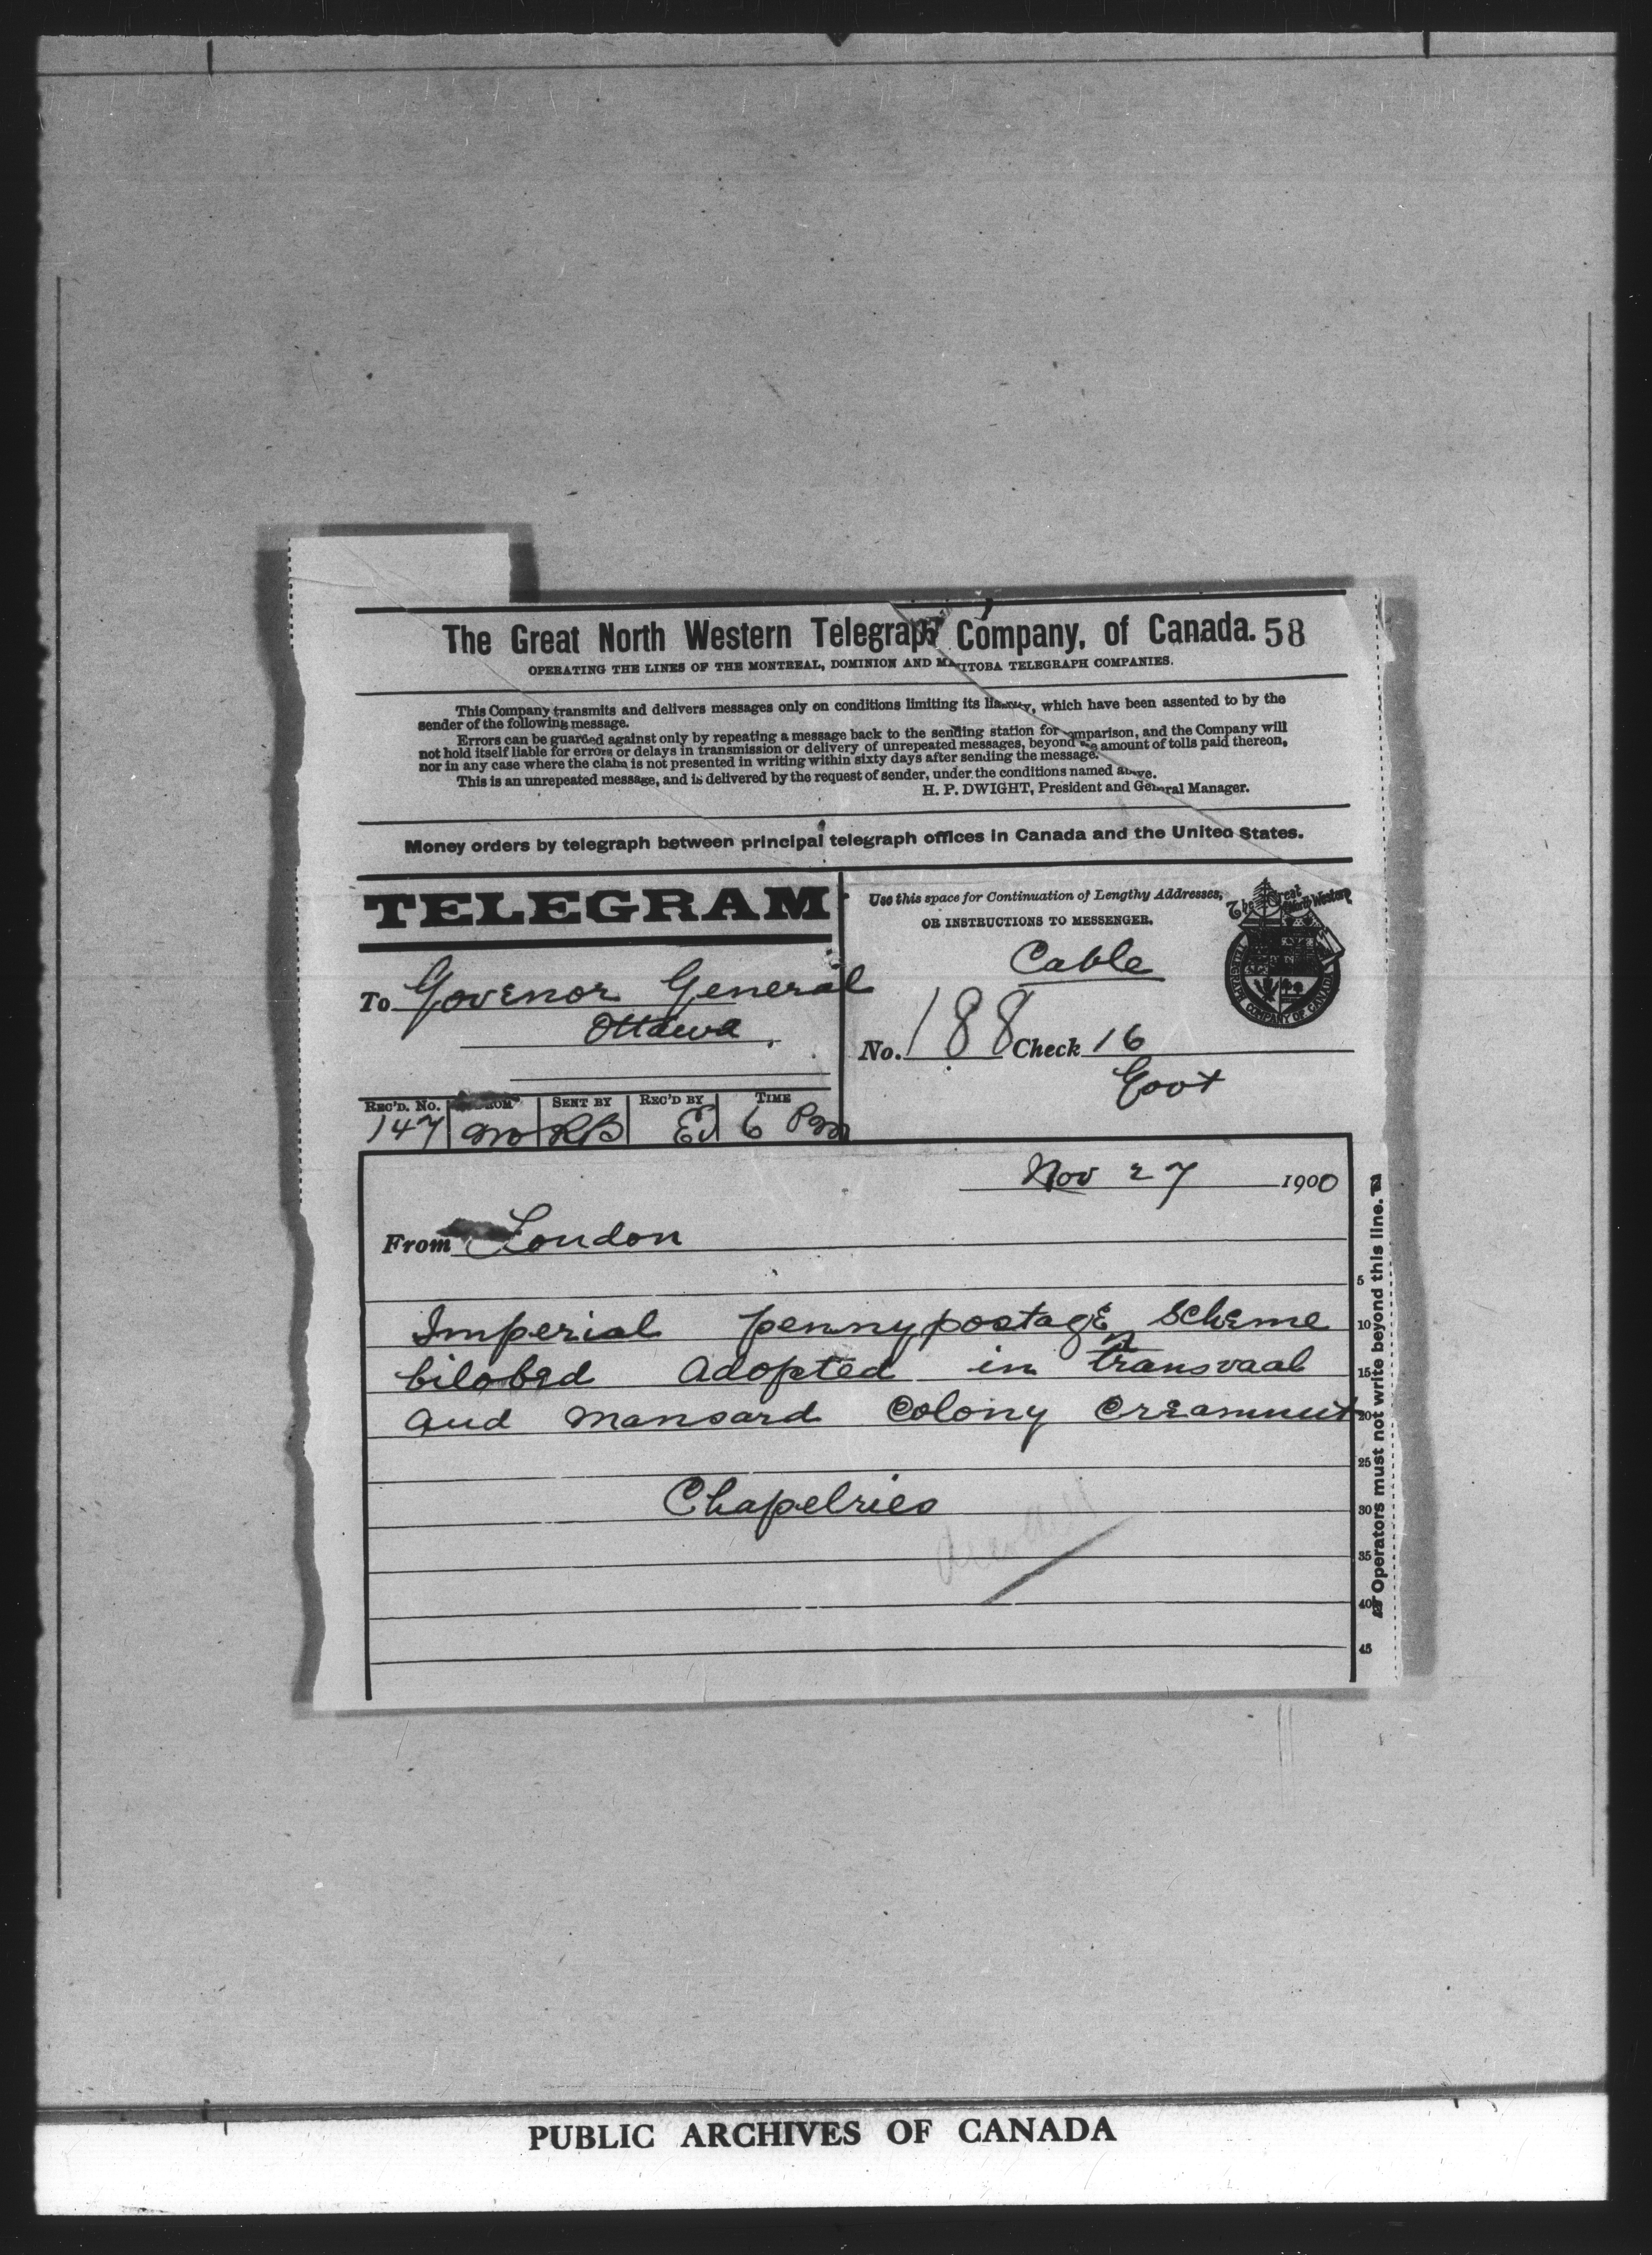 The Great North Western Telegraph Company, of Canada. 58
OPERATING THE LINES OF THE MONTREAL, DOMINION AND MANITOBA TELEGRAPH COMPANIES.
This Company transmits and delivers messages only on conditions limiting its liability, which have been assented to by the
sender of the following message.
Errors can be guarded against only by repeating a message back to the sending station for comparison, and the Company will
not hold itself liable for errors or delays in transmission or delivery of unrepeated messages, beyond the amount of tolls paid thereon,
nor in any case where the claim is not presented in writing within sixty days after sending the message.
This is an unrepeated message, and is delivered by the request of sender, under the conditions named above.
H. P. DWIGHT, President and General Manager.
Money orders by telegraph between principal telegraph offices in Canada and the United States.
TELEGRAM
Use this space for Continuation of Lengthy Addresses,
OR INSTRUCTIONS TO MESSENGER.
The Great North Western
TELEGRAPH COMPANY OF CANADA
Cable
To Govenor General
Ottawa
No. 188 Check 16
Govt
REC'D. No. FROM SENT BY REC'D BY TIME
147 Mo RB EJ 6 Pm
Nov 27 1900
From London
Imperial pennypostage scheme
bilobed adopted in transvaal
and mansard colony creamnut
Chapelries
5
10
15
20
25
30
35
40
45
Operators must not write beyond this line.
PUBLIC ARCHIVES OF CANADA